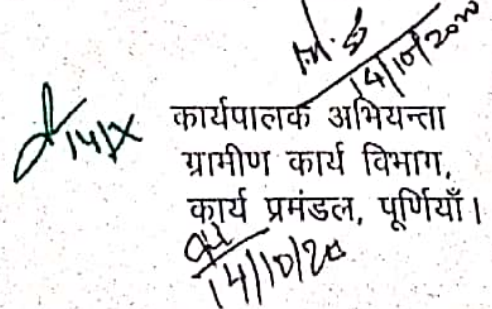 14/10/2020
14/X
कार्यपालक अभियन्ता
ग्रामीण कार्य विभाग,
कार्य प्रमंडल, पूर्णियाँ।
14/10/20